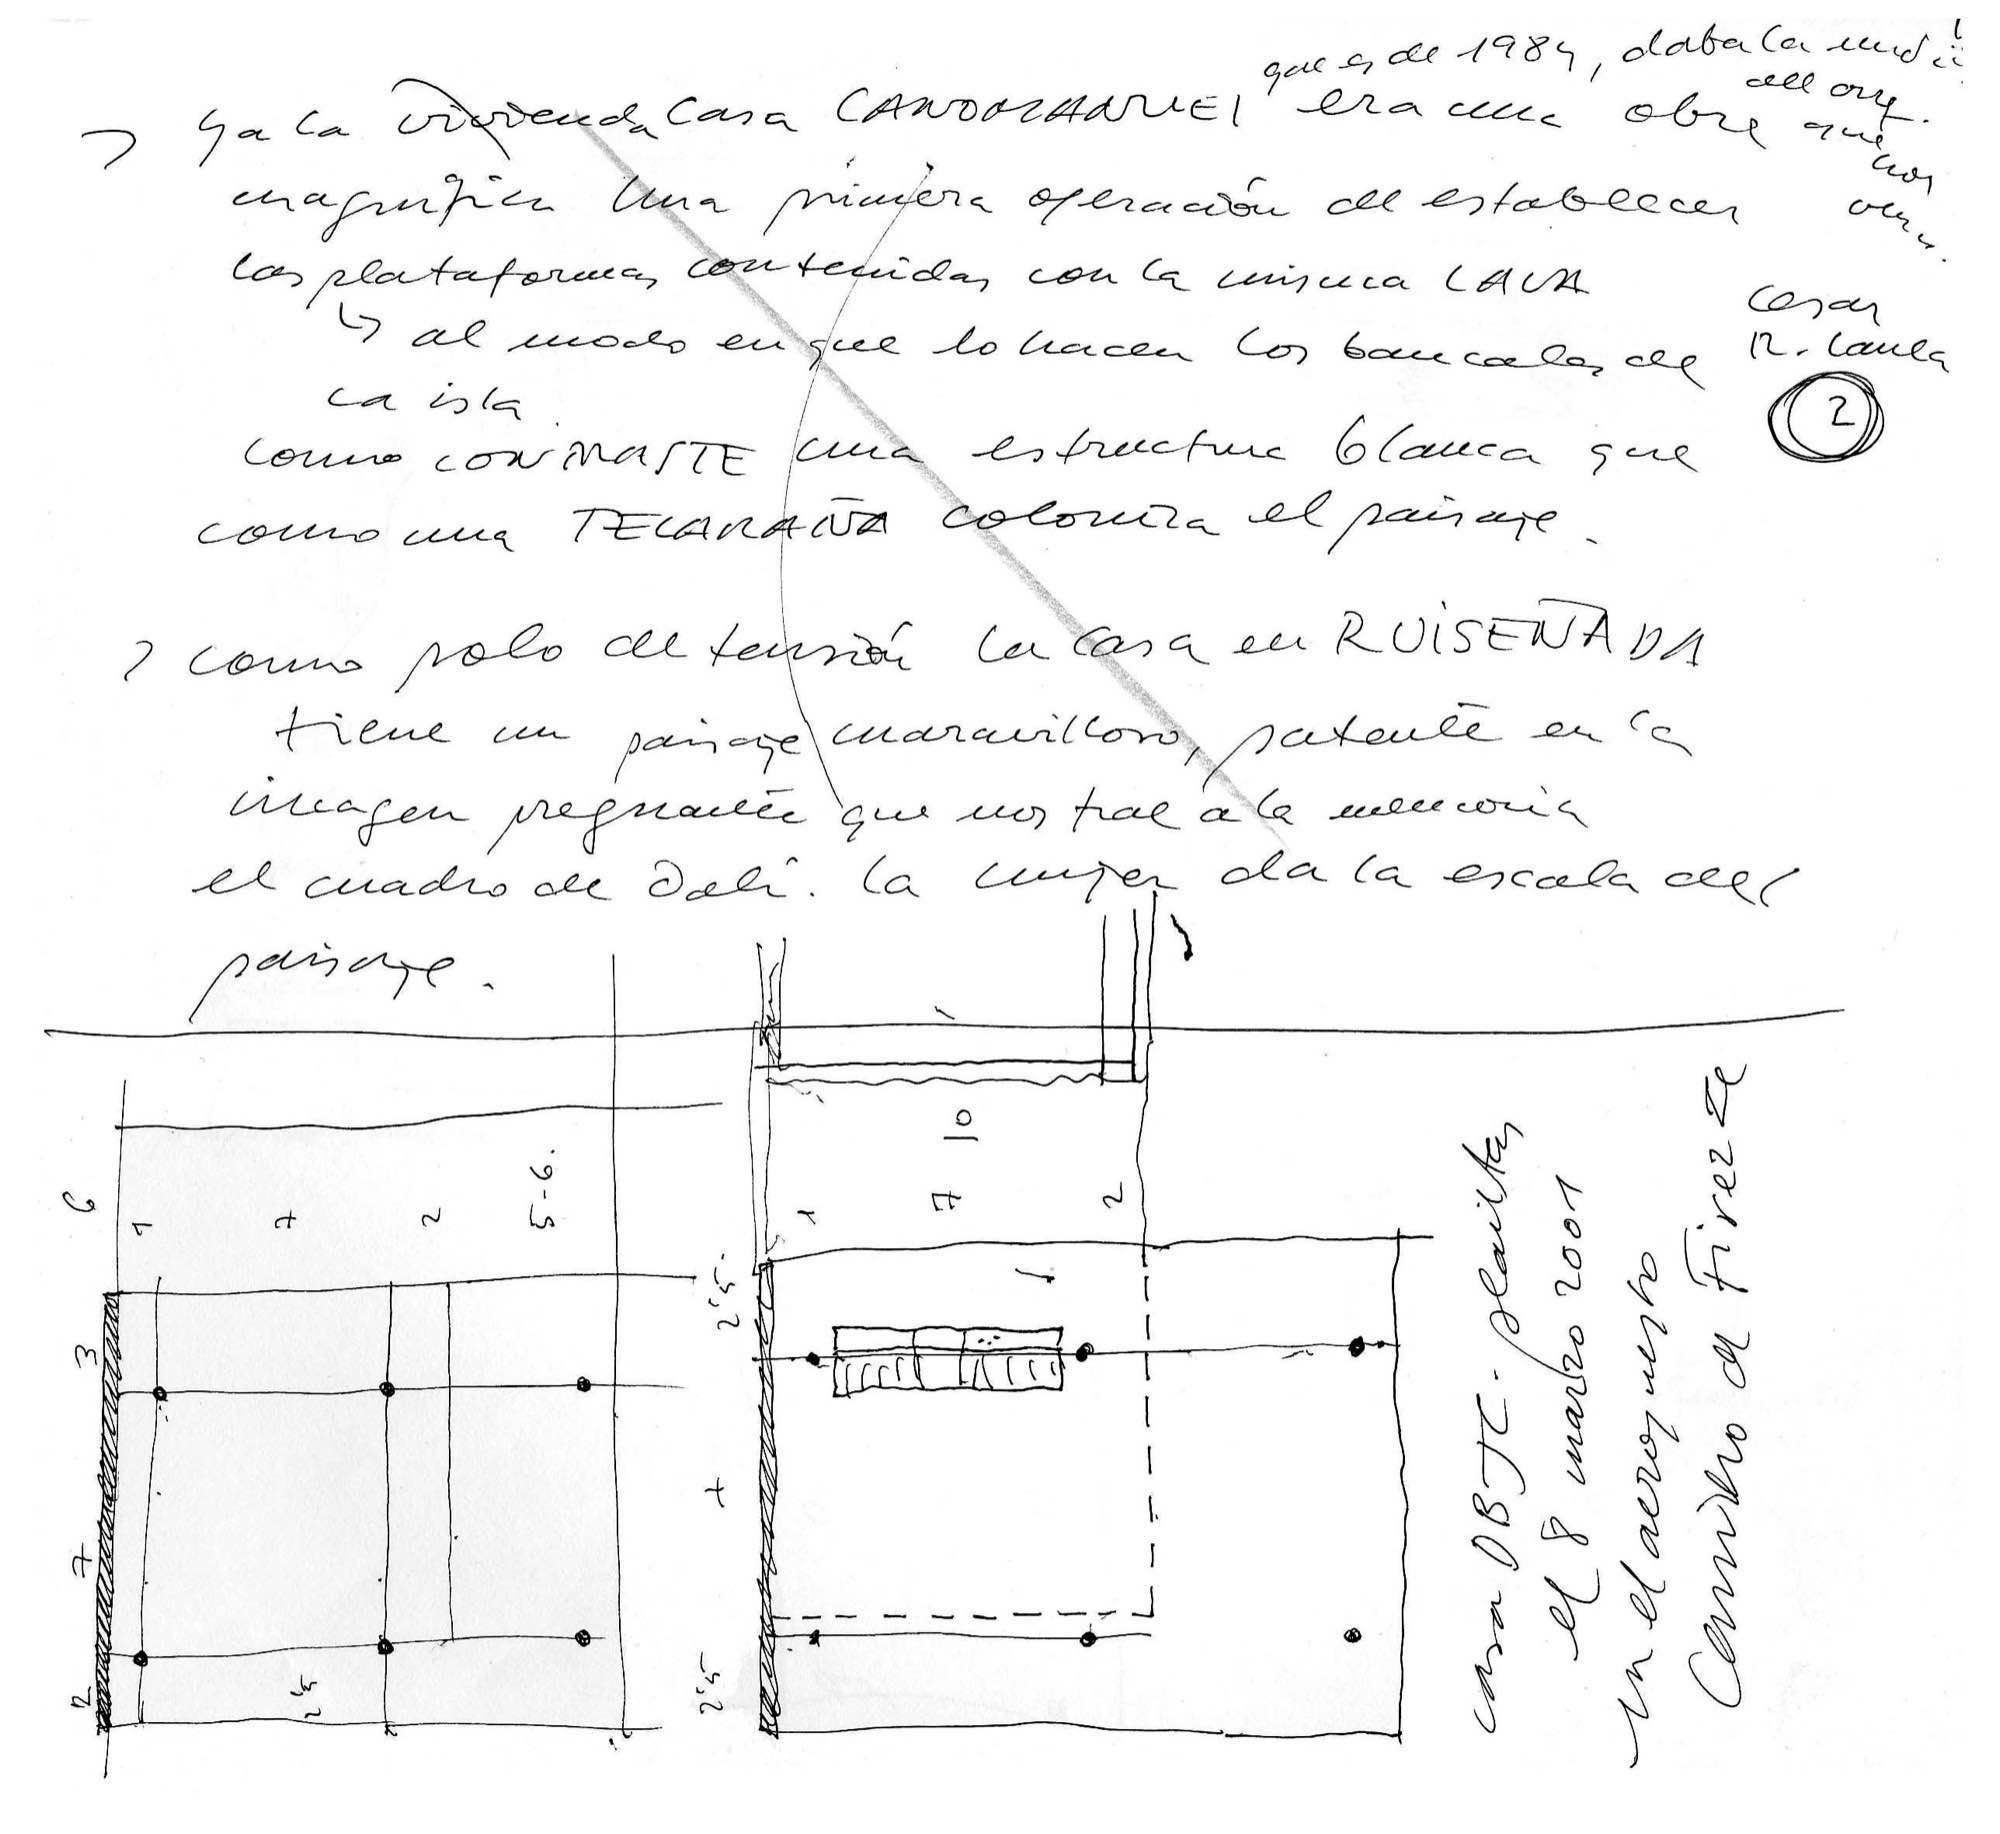 que es de 1984, daba la
del arq.
que
nos
ya la vivienda casa era una obra
magnífica Una primera operación de establecer
las plataformas contenidas con la misma LAVA
↳ al modo en que lo hacen los bancales de
la isla
como CONTRASTE una estructura blanca que
como una TELARAÑA coloniza el paisaje.
Cesar
2
como polo de tensión la casa en RUISEÑADA
tiene un paisaje maravilloso, patente en la
imagen pregnante que nos trae a la memoria
el cuadro de Dalí. La mujer da la escala del
paisaje.
6
1 7 2 5-6.
3
7
2
2'5
10
1 7 2
2'5
7
2'5
casa DBJC. plantas
el 8 marzo 2001
en el aeropuerto
Camino de Firenze